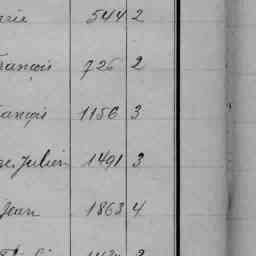 544 2
François 726 2
François 1156 3
Julien 1491 3
Jean 1863 4